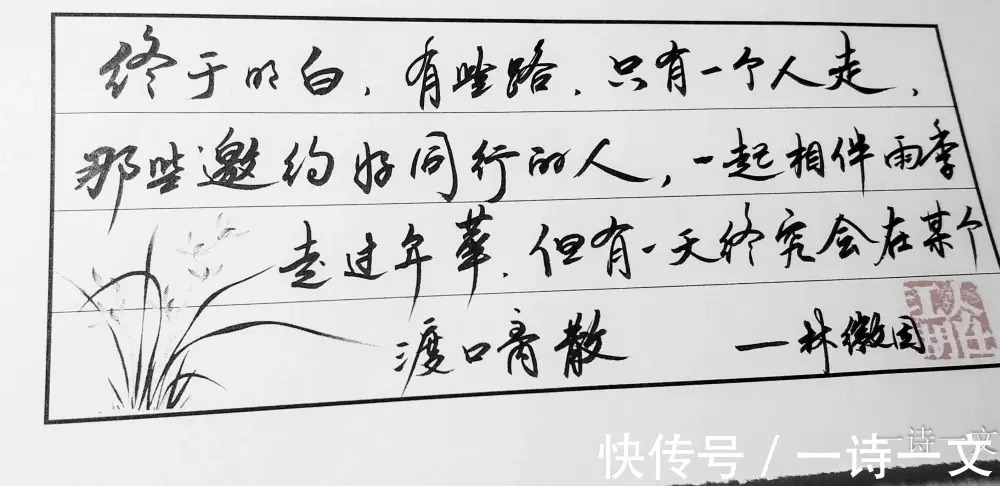 终于明白，有些路，只有一个人走，
那些邀约好同行的人，一起相伴雨季
走过年华，但有一天终究会在某个
渡口离散 一林徽因
一诗一文
快传号／一诗一文